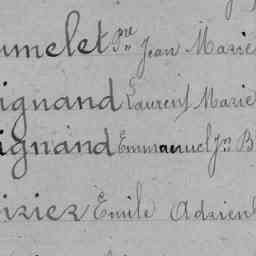 umelet Pre Jean Marie
ignand Laurent Marie
ignand Emmanuel Jn B
irier Emile Adrien